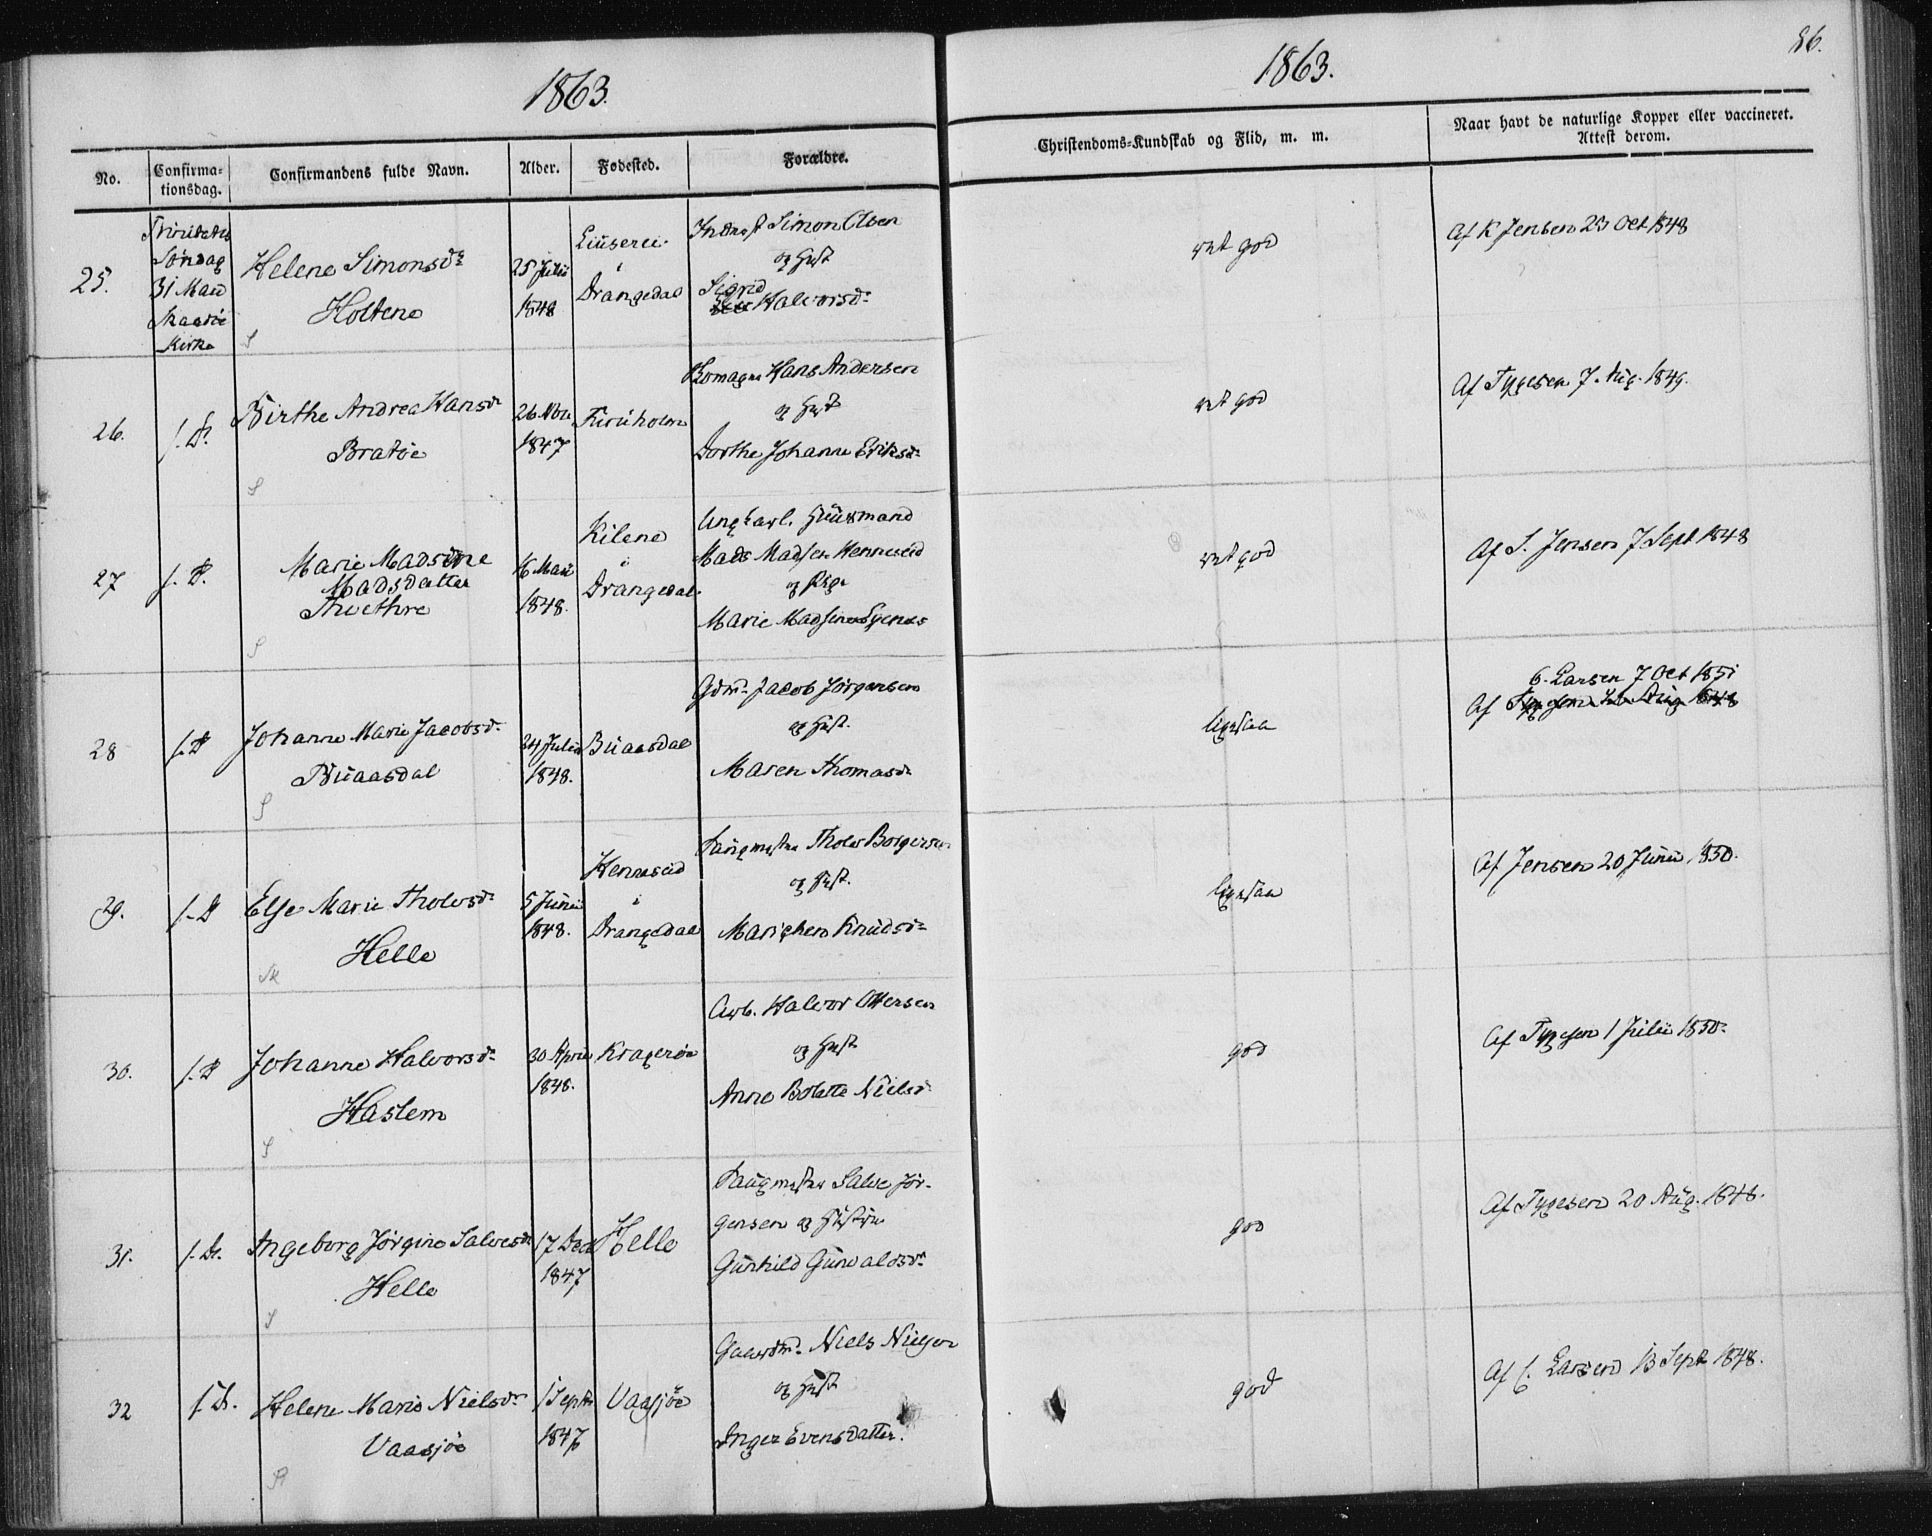 1863.
1863.
86.
No.
Confirma-
tionsdag.
Confirmandens fulde Navn.
Alder.
Fødested.
Forældre.
Christendoms-Kundskab og Flid, m. m.
Naar havt de naturlige Kopper eller vaccineret.
Attest derom.
25.
Trinitatis
Søndag
31 Maii
Skaatøe
Kirke
Helene Simonsdr
Holtene
25 Julii
1848
i
Drangedal
Simon Olsen
og Hust
Sigrid
Halvorsdr
ret god
Af K Jensen 23 Oct 1848
26.
s. D.
Birthe Andrea Hansdr
Bratøe
26 Nov.
1847
Furuholm
Hans Andersen
og Hust
Dorthe Johanne Eriksdr
ret god
Af Tygesen 7. Aug. 1849.
27
s. D.
Marie Madsine
Madsdatter
Thoethre
16 Maii
1848.
Kilene
i
Drangedal.
Ungkarl. Huusmand
Mads Madsen Henneseid
og Pige
Marie Madsine
ret god
Af S. Jensen 7 Sept 1848
28
s. D
Johanne Marie Jacobsdr
Buaasdal
24 Julii
1848.
Buaasdal
Gdm. Jacob Jørgensen
og Hust.
Maren Thomasdr
ligesaa
C. Larsen 7 Oct 1851
Af
29.
s. D
Else Marie Tholvsdr
Helle
5 Junii
1848.
Henneseid
i
Drangedal
Saugmester Tholv Borgersen
og Hust.
Marichen Knudsdr
ligesaa
Af Jensen 20 Junii 1850.
30.
s. D
Johanne Halvorsdr
Haslem
30 April
1848.
Kragerøe
Arb. Halvor Ottersen
og Hust
Anne Bolette Nielsdr
god
Af Tygesen 1 Julii 1850.
31.
s. D.
Ingeborg Jørgine Salvesdr
Helle
17 Dec
1847
Helle
Saugmester Salve Jør-
gensen og Hustru
Gunhild Gunvaldsdr
god
Af Tygesen 20 Aug. 1848.
32
s. D.
Helene Marie Nielsdr
Vaasjøe
1 Sept
1847
Vaasjøe
Gaardm. Niels Nielsen
og Hust
Inger Evensdatter.
god
Af C. Larsen 13 Sept 1848.